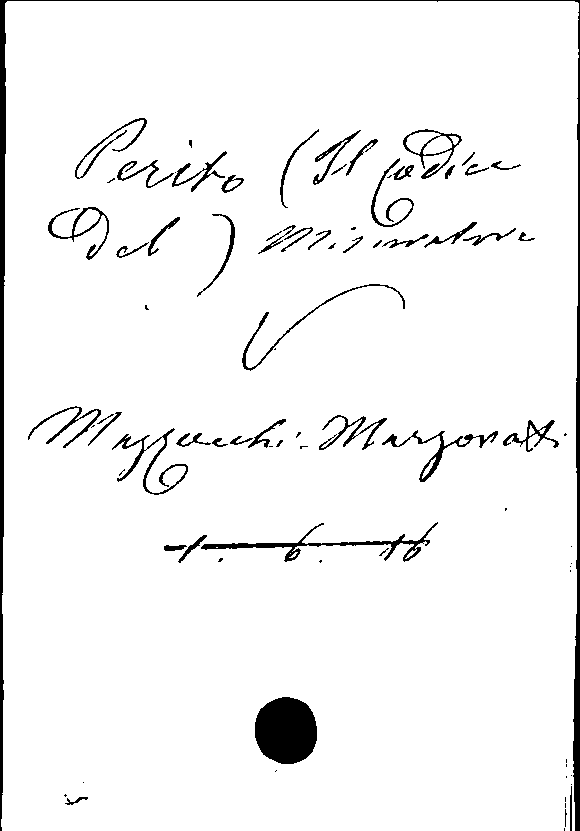 Perito (Il Codice
Del) Misuratore
Mazzocchi-Marzorati
1. 6. 16